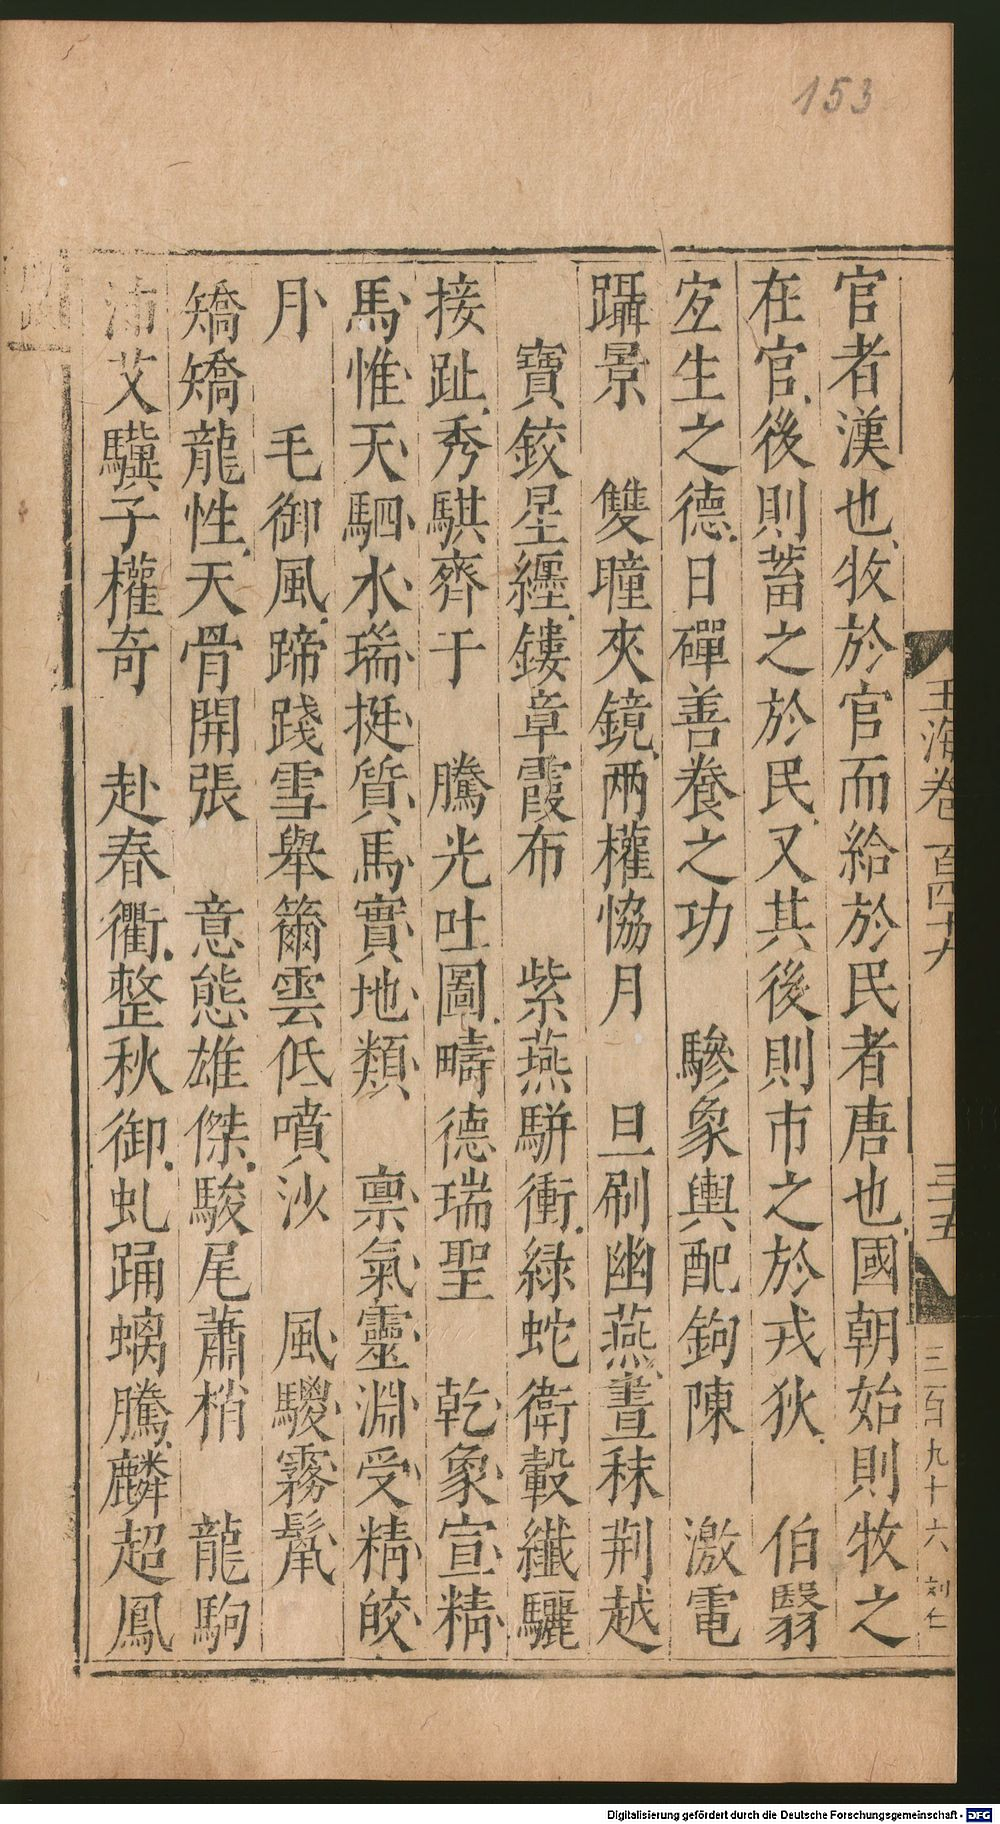 153
玉海卷一百四十九
三十五
三百九十六
刘仁
官者漢也牧於官而給於民者唐也國朝始則牧之
在官後則蓄之於民又其後則市之於戎狄　伯翳
㝎生之德日磾善養之功　驂象輿配鉤陳　激電
躡景　雙瞳夾鏡兩權恊月　旦刷幽燕晝秣荆越
寶鉸星纏鏤章霞布　紫燕駢衝綠蛇衛轂纖驪
接趾秀騏齊亍　騰光吐圖疇德瑞聖　乾象宣精
馬惟天駟水瑞挺質馬實地類　禀氣靈淵受精皎
月　毛御風蹄踐雪舉籋雲低噴沙　風騣霧鬛
矯矯龍性天骨開張　意態雄傑駿尾蕭梢　龍駒
沛艾驥子權奇　赴春衢整秋御虬踊螭騰麟超鳳
Digitalisierung gefördert durch die Deutsche Forschungsgemeinschaft - DFG